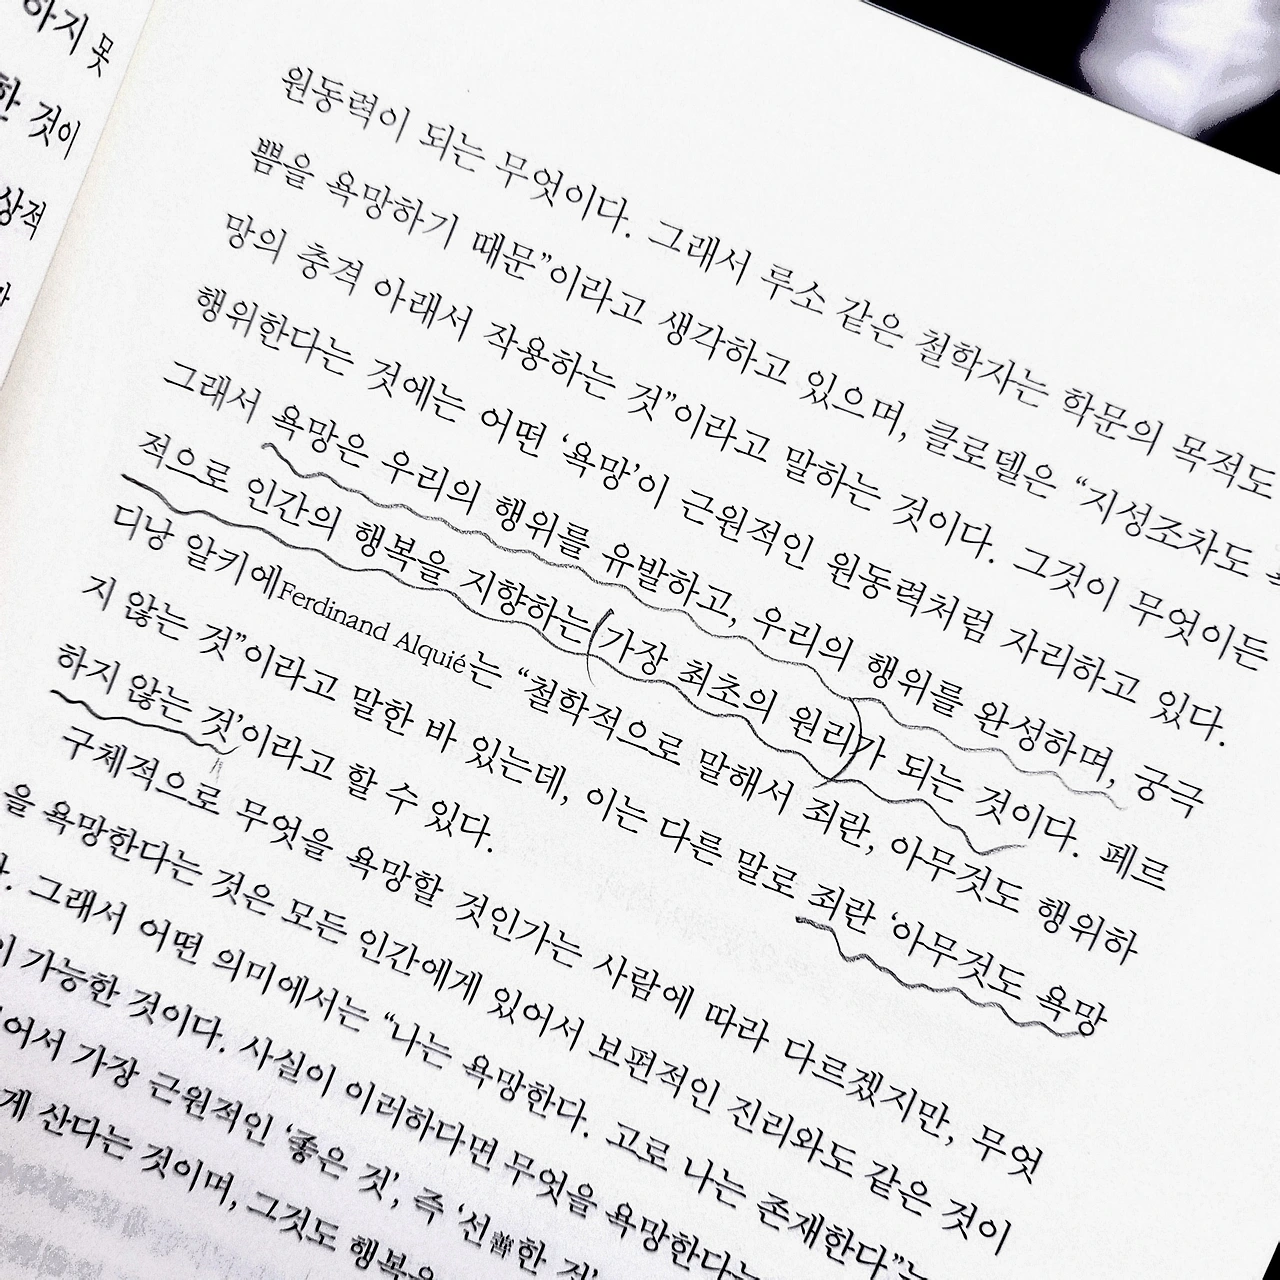 하지 못
한 것이
상적
원동력이 되는 무엇이다. 그래서 루소 같은 철학자는 학문의 목적도
쁨을 욕망하기 때문”이라고 생각하고 있으며, 클로델은 “지성조차도
망의 충격 아래서 작용하는 것”이라고 말하는 것이다. 그것이 무엇이든
행위한다는 것에는 어떤 ‘욕망’이 근원적인 원동력처럼 자리하고 있다.
그래서 욕망은 우리의 행위를 유발하고, 우리의 행위를 완성하며, 궁극
적으로 인간의 행복을 지향하는 가장 최초의 원리가 되는 것이다. 페르
디낭 알키에Ferdinand Alquié는 “철학적으로 말해서 죄란, 아무것도 행위하
지 않는 것”이라고 말한 바 있는데, 이는 다른 말로 죄란 ‘아무것도 욕망
하지 않는 것’이라고 할 수 있다.
구체적으로 무엇을 욕망할 것인가는 사람에 따라 다르겠지만, 무엇
을 욕망한다는 것은 모든 인간에게 있어서 보편적인 진리와도 같은 것이
다. 그래서 어떤 의미에서는 “나는 욕망한다. 고로 나는 존재한다”는
가능한 것이다. 사실이 이러하다면 무엇을 욕망한다는
어서 가장 근원적인 ‘좋은 것’, 즉 ‘선善한 것’
게 산다는 것이며, 그것도 행복은